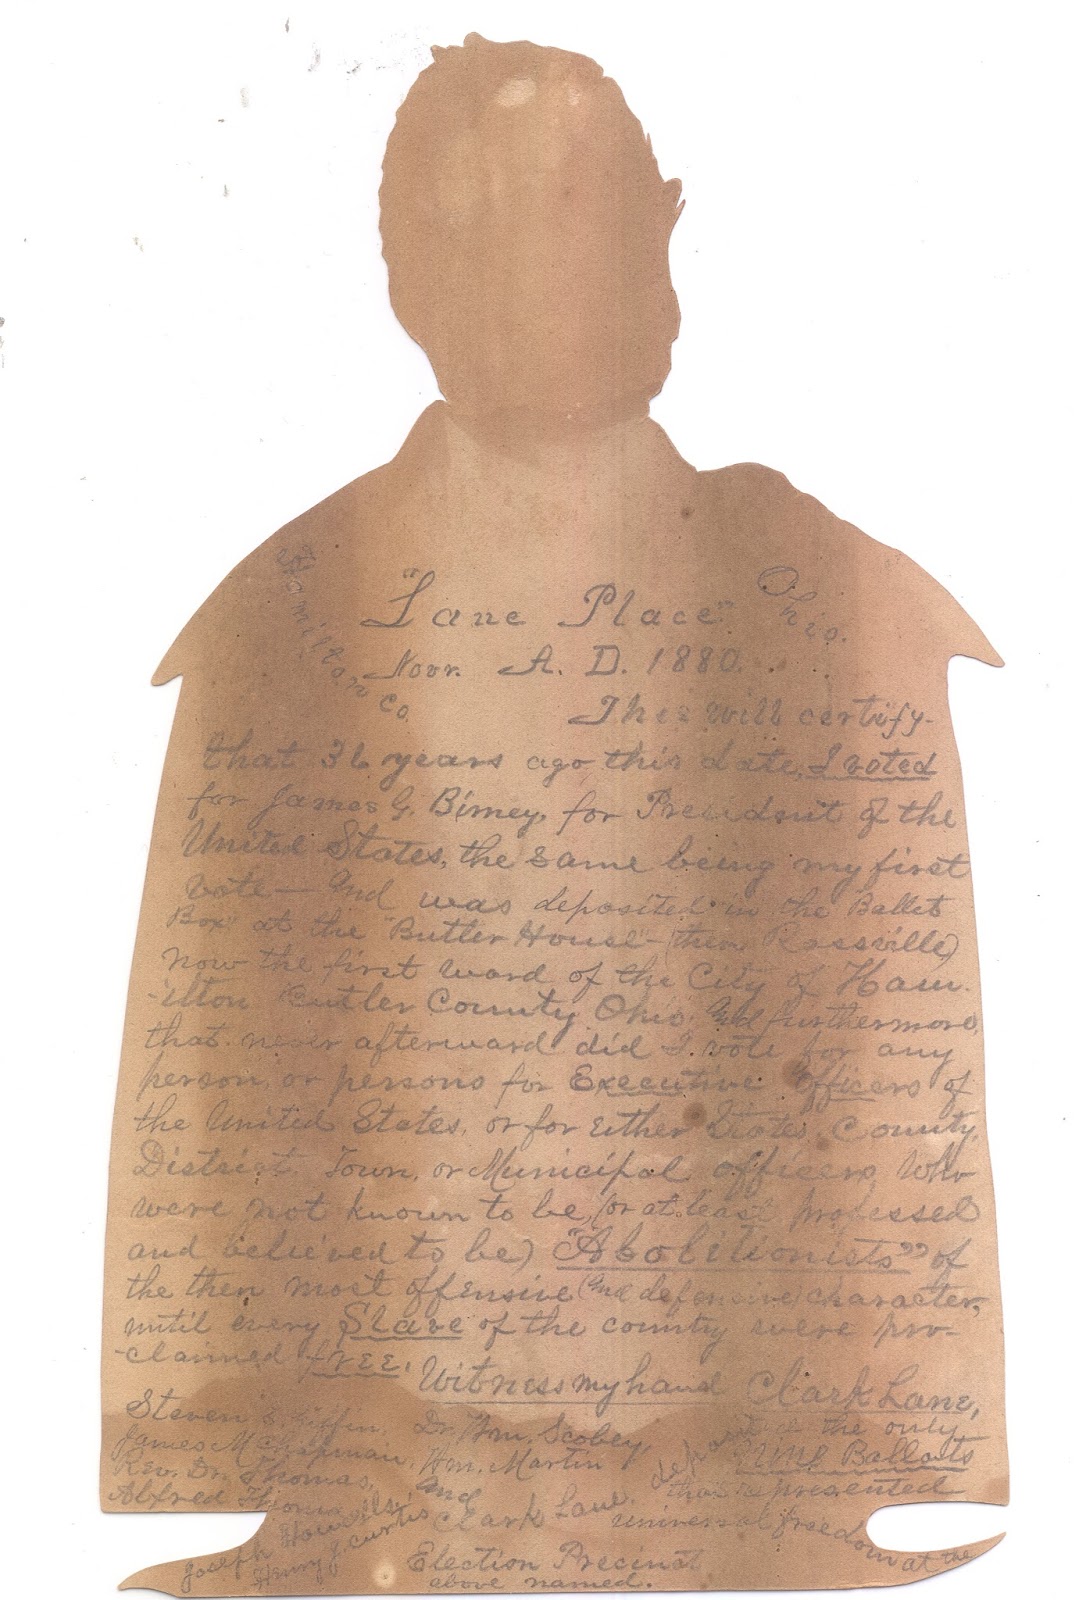 Hamilton Co.
"Lane Place" Ohio.
Novr. A. D. 1880.
This will certify-
that 36 years ago this date, I voted
for James G. Birney, for President of the
United States, the same being my first
vote— And was deposited in the Ballot
Box" at the "Butler House"— (then Rossville)
now the first ward of the City of Ham-
-ilton Butler County Ohio; And furthermore,
that never afterward did I vote for any
person, or persons for Executive officers of
the United States, or for Either State, County,
District, Town, or Municipal officers, who
were not known to be, (or at least professed
and believed to be) "Abolitionists" of
the then most offensive (and defensive) character,
until every Slave of the country were pro-
-claimed free. Witness my hand Clark Lane,
Steven Giffin, Dr. Wm. Scobey,
James M Chapman, Wm. Martin
Rev. Dr. Thomas, And
Alfred Thomas Clark Lane.
Joseph Howells
Henry J. Curtis
deposited the only
nine Ballots
that represented
universal freedom at the
Election Precinct
above named.